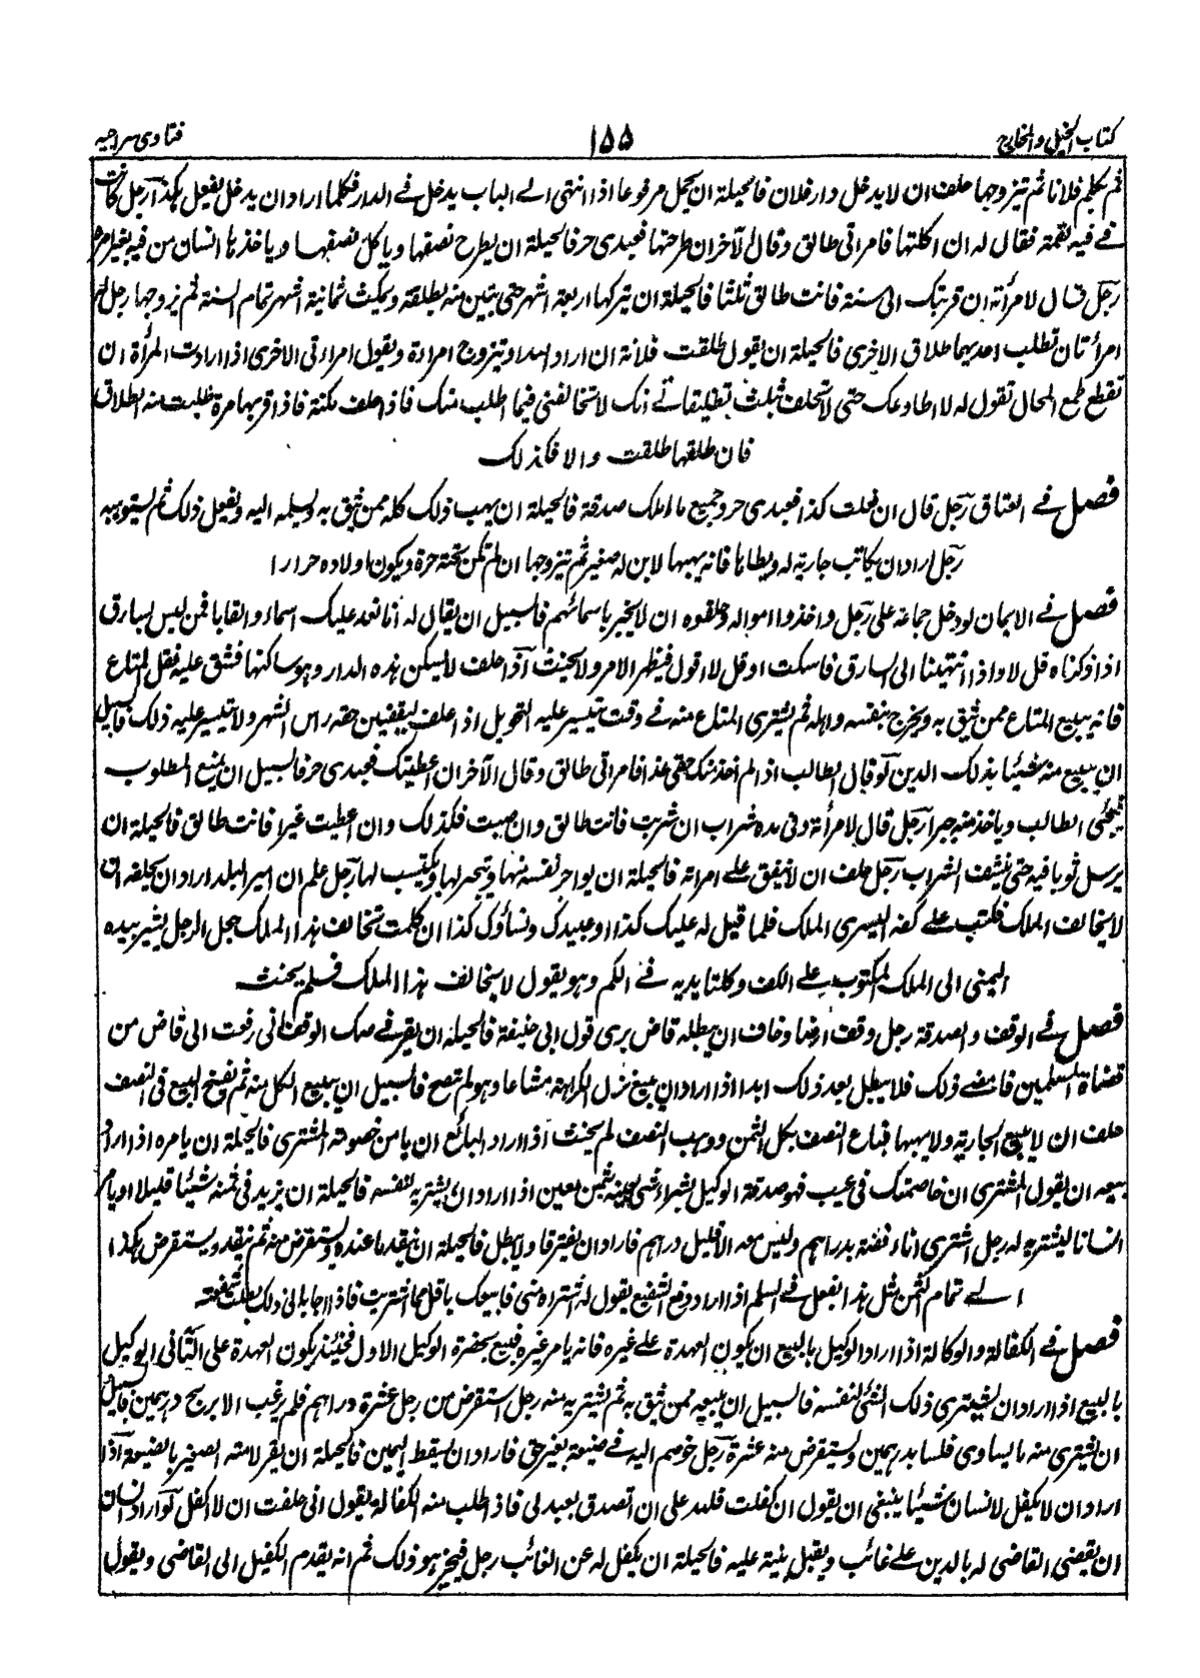 كتاب الحيل والمخارج ١٥٥ فتاوى سراجيه
ثم يكلم فلانا ثم تيزوجها حلف ان لا يدخل دار فلان فالحيلة ان يحمل مرفوعا اذا انتهى الے الباب يدخل فے الدار فكلما اراد ان يدخل يفعل هكذا رجل كانت
فے فيه لقمة فقال له ان اكلتها فامراتى طالق وقال الآخر ان طرحتها فعبدى حر فالحيلة ان يطرح نصفها وياكل نصفها وياخذها انسان من فيه بغير امره
رجل قال لامرأته ان قربتك الى سنة فانت طالق ثلثا فالحيلة ان تيركها اربعة اشهر حتى تبين منه بطلقة ويمكث ثمانية اشهر تمام السنة ثم يزوجها رجل له
امرأتان تطلب احديهما طلاق الاخرى فالحيلة ان يقول طلقت فلانة ان اراد الله او تيزوج امرادة ويقول امراتى الاخرى اذا ارادت المرأة ان
تقطع طمع المحال تقول له لا اطاوعك حتى لا تستحلف بثلث تطليقاتے انك لا تخالفنى فيما اطلب منك فاذا حلف مكنته فاذا قربها مرة طلبت منه الطلاق
فان طلقها طلقت والا فكذلك
فصل فے العتاق رجل قال ان فعلت كذا فعبدى حر وجميع ما املك صدقة فالحيلة ان يهب ذلك كله ممن يثق به ويسلمه اليه ويفعل ذلك ثم يستوهبه
رجل اراد ان يكاتب جارية له ويطاها فانه يهبها لابن له صغير ثم تيزوجها ان لم تكن تحته حرة ويكون اولاده حرارا
فصل فے الايمان لو دخل جماعة على رجل واخذوا امواله وحلفوه ان لا يخبر باسمائهم فالسبيل ان يقال له انا نعد عليك اسماء والقابا فمن ليس بسارق
اذا ذكرناه قل لا واذا انتهينا الى السارق فاسكت او قل لا اقول فيظهر الامر ولا يحنث اذا حلف لا يسكن هذه الدار وهو ساكنها فشق عليه نقل المتاع
فانه يبيع المتاع ممن يثق به ويخرج بنفسه واهله ثم يشترى المتاع منه فے وقت تيسر عليه التحويل اذا حلف ليقضين حقه راس الشهر ولا يتيسر عليه ذلك فالسبيل
ان يبيع منه شيئا بذلك الدين لو قال الطالب اذا لم آخذ منك حقى غدا فامراتى طالق وقال الآخر ان اعطيتك فعبدى حر فالسبيل ان يمنع المطلوب
فيجئى الطالب وياخذ منه جبرا رجل قال لامرأته وفى يده شراب ان شربت فانت طالق وان صببت فكذلك وان اعطيت غيرا فانت طالق فالحيلة ان
يرسل ثوبا فيه حتى ينشف الشراب رجل حلف ان لا ينفق علے امراته فالحيلة ان يواجر نفسه منها ويتجر لها ويكتسب لها رجل علم ان امير البلد اراد ان يحلفه ان
لا يخالف الملك فكتب علے كفه اليسرى الملك فلما قيل له عليك كذا وعبيدك ونساؤك كذا ان كلمت تخالف هذا الملك جعل الرجل يشير بيده
اليمنى الى الملك المكتوب علے الكف وكلتا يديه فے الكم وهو يقول لا يخالف هذا الملك فلم يحنث
فصل فے الوقف والصدقة رجل وقف ارضا وخاف ان يبطله قاض يرى قول ابى حنيفة فالحيلة ان يقر فے صك الوقف انى رفعت الى قاض من
قضاة المسلمين فامضے ذلك فلا يبطل بعد ذلك ابدا اذا اراد ان يبيع غزل الكراهة مشاعا وهو لم يصح فالسبيل ان يبيع الكل منه ثم يفسخ البيع فى النصف
حلف ان لا يبيع الجارية ولا يهبها فباع النصف بكل الثمن ووهب النصف لم يحنث اذا اراد البائع ان يا من خصومة المشترى فالحيلة ان يامره اذا اراد
بيعه ان يقول المشترى ان خاصمتك فى عيب فهو صدقة الوكيل بشراء شئ بعينه بثمن معين اذا اراد ان يشتريه لنفسه فالحيلة ان يزيد فى ثمنه شيئا قليلا او يامر
انسانا ليشتريه له رجل اشترى اناء فضة بدراهم وليس معه الا قليل دراهم فاراد ان يفترقا ولا يبطل فالحيلة ان ينقد ما عنده ويستقرض منه ثم ينقد ويستقرض هكذا
الے تمام الثمن مثل هذا يفعل فے السلم اذا اراد دفع الشفيع يقول له اشتراه منى فابيعك باقل مما اشتريت فاذا اجابه الى ذلك بطلت شفعته
فصل فے الكفالة والوكالة اذا اراد الوكيل بالبيع ان يكون العهدة علے غيره فانه يامر غيره فيبيع بحضرة الوكيل الاول فحينئذ يكون العهدة على الثانى الوكيل
بالبيع اذا اراد ان يشترى ذلك الشئ لنفسه فالسبيل ان يبيعه ممن يثق به ثم يشتريه منه رجل استقرض من رجل عشرة دراهم فلم يرغب الا بربح درهمين فالسبيل
ان يشترى منه ما يساوى فلسا بدرهمين ويستقرض منه عشرة رجل خوصم اليه فے ضيعة بغير حق فاراد ان يسقط اليمين فالحيلة ان يقر لامته الصغير بالضيعة اذا
اراد ان لا يكفل لانسان شيئا ينبغى ان يقول ان كفلت فلله على ان تصدق بعبد لى فاذا طلب منه الكفالة يقول انى حلفت ان لا اكفل لو اراد انسان
ان يقضى القاضى له بالدين علے غائب ويقبل بينة عليه فالحيلة ان يكفل له عن الغائب رجل فيخبر هو ذلك ثم انه يقدم الكفيل الى القاضى ويقول